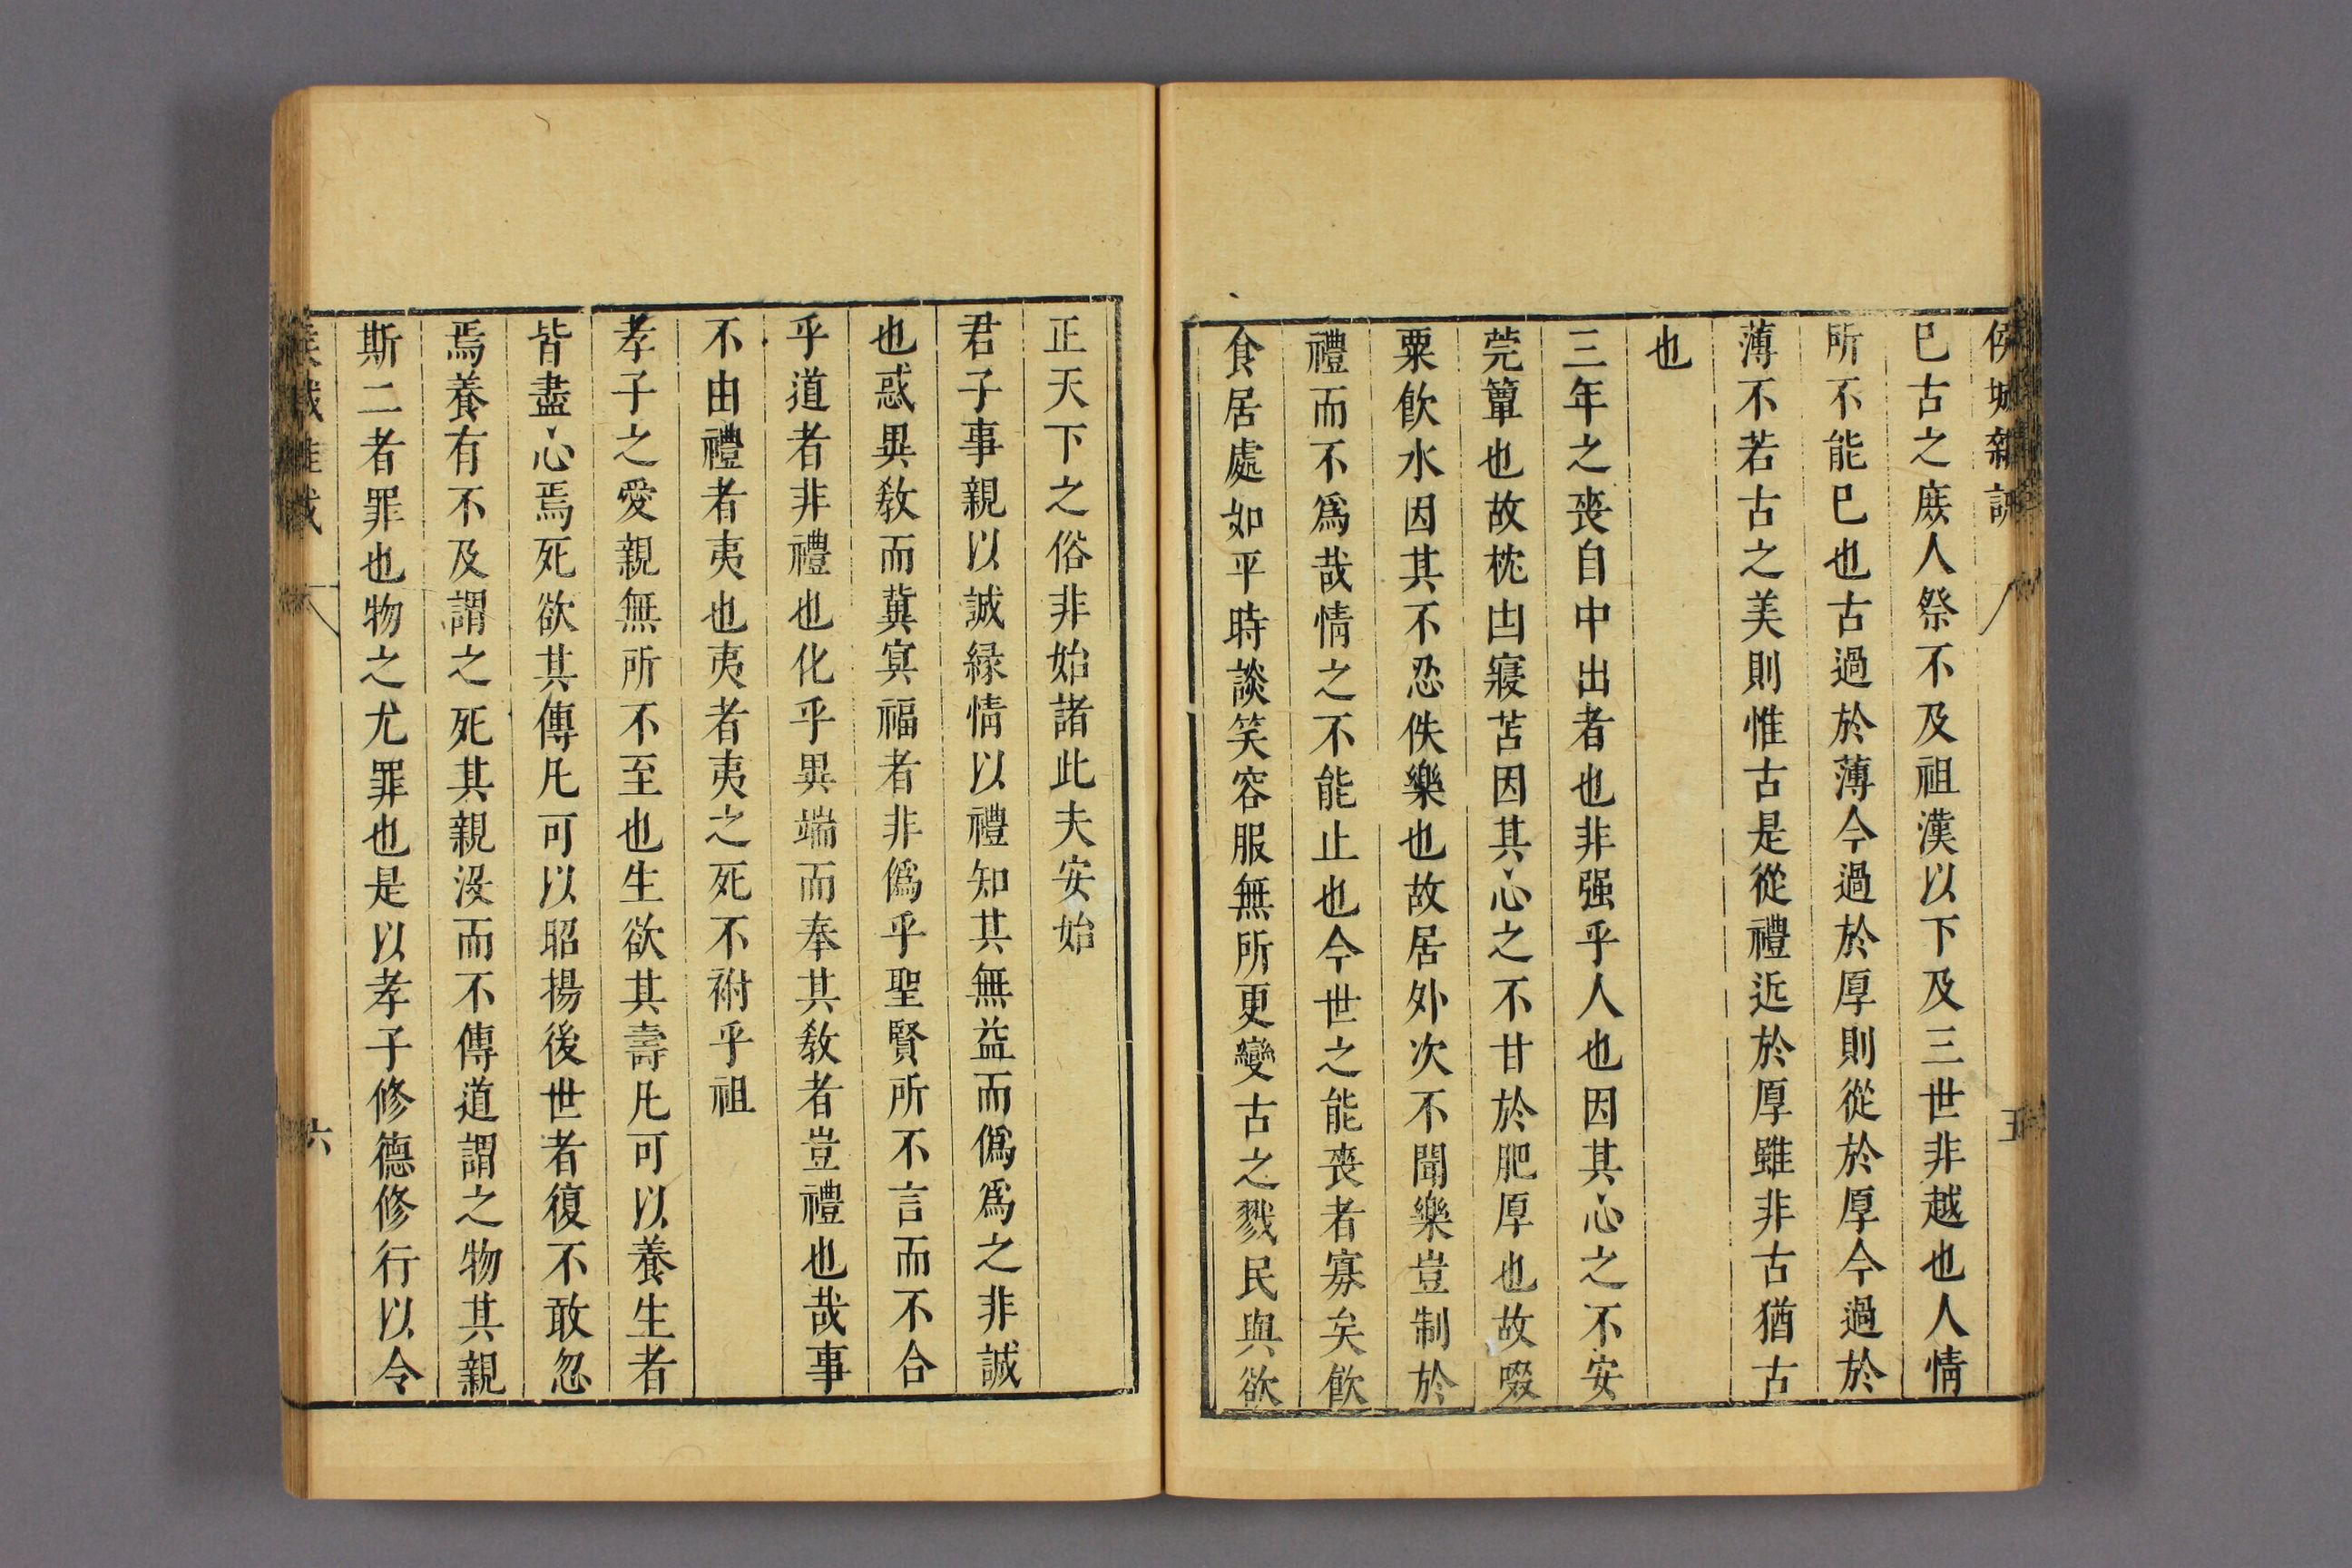 侯城雜誡
五
已古之庶人祭不及祖漢以下及三世非越也人情
所不能已也古過於薄今過於厚則從於厚今過於
薄不若古之美則惟古是從禮近於厚雖非古猶古
也
三年之喪自中出者也非强乎人也因其心之不安
莞簟也故枕凷寢苫因其心之不甘於肥厚也故啜
粟飲水因其不忍佚樂也故居外次不聞樂豈制於
禮而不爲哉情之不能止也今世之能喪者寡矣飲
食居處如平時談笑容服無所更變古之戮民與欲
正天下之俗非始諸此夫安始
君子事親以誠緣情以禮知其無益而僞爲之非誠
也惑異敎而冀冥福者非僞乎聖賢所不言而不合
乎道者非禮也化乎異端而奉其敎者豈禮也哉事
不由禮者夷也夷者夷之死不祔乎祖
孝子之愛親無所不至也生欲其壽凡可以養生者
皆盡心焉死欲其傳凡可以昭揚後世者復不敢忽
焉養有不及謂之死其親沒而不傳道謂之物其親
斯二者罪也物之尤罪也是以孝子修德修行以令
六